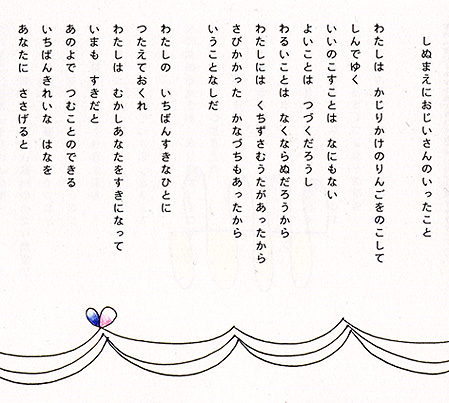 しぬまえにおじいさんのいったこと
わたしは　かじりかけのりんごをのこして
しんでゆく
いいのこすことは　なにもない
よいことは　つづくだろうし
わるいことは　なくならぬだろうから
わたしには　くちずさむうたがあったから
さびかかった　かなづちもあったから
いうことなしだ
わたしの　いちばんすきなひとに
つたえておくれ
わたしは　むかしあなたをすきになって
いまも　すきだと
あのよで　つむことのできる
いちばんきれいな　はなを
あなたに　ささげると